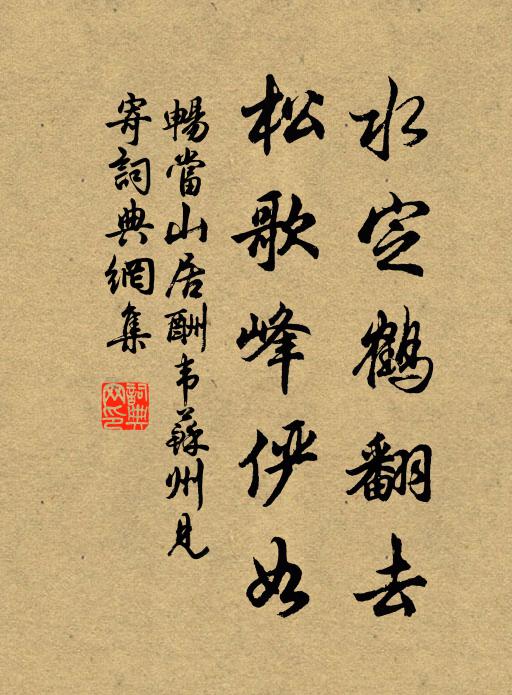 水定鶴翻去
松歌峰俨如
暢當山居酬韦蘇州見
寄詞典網集
詞典网印